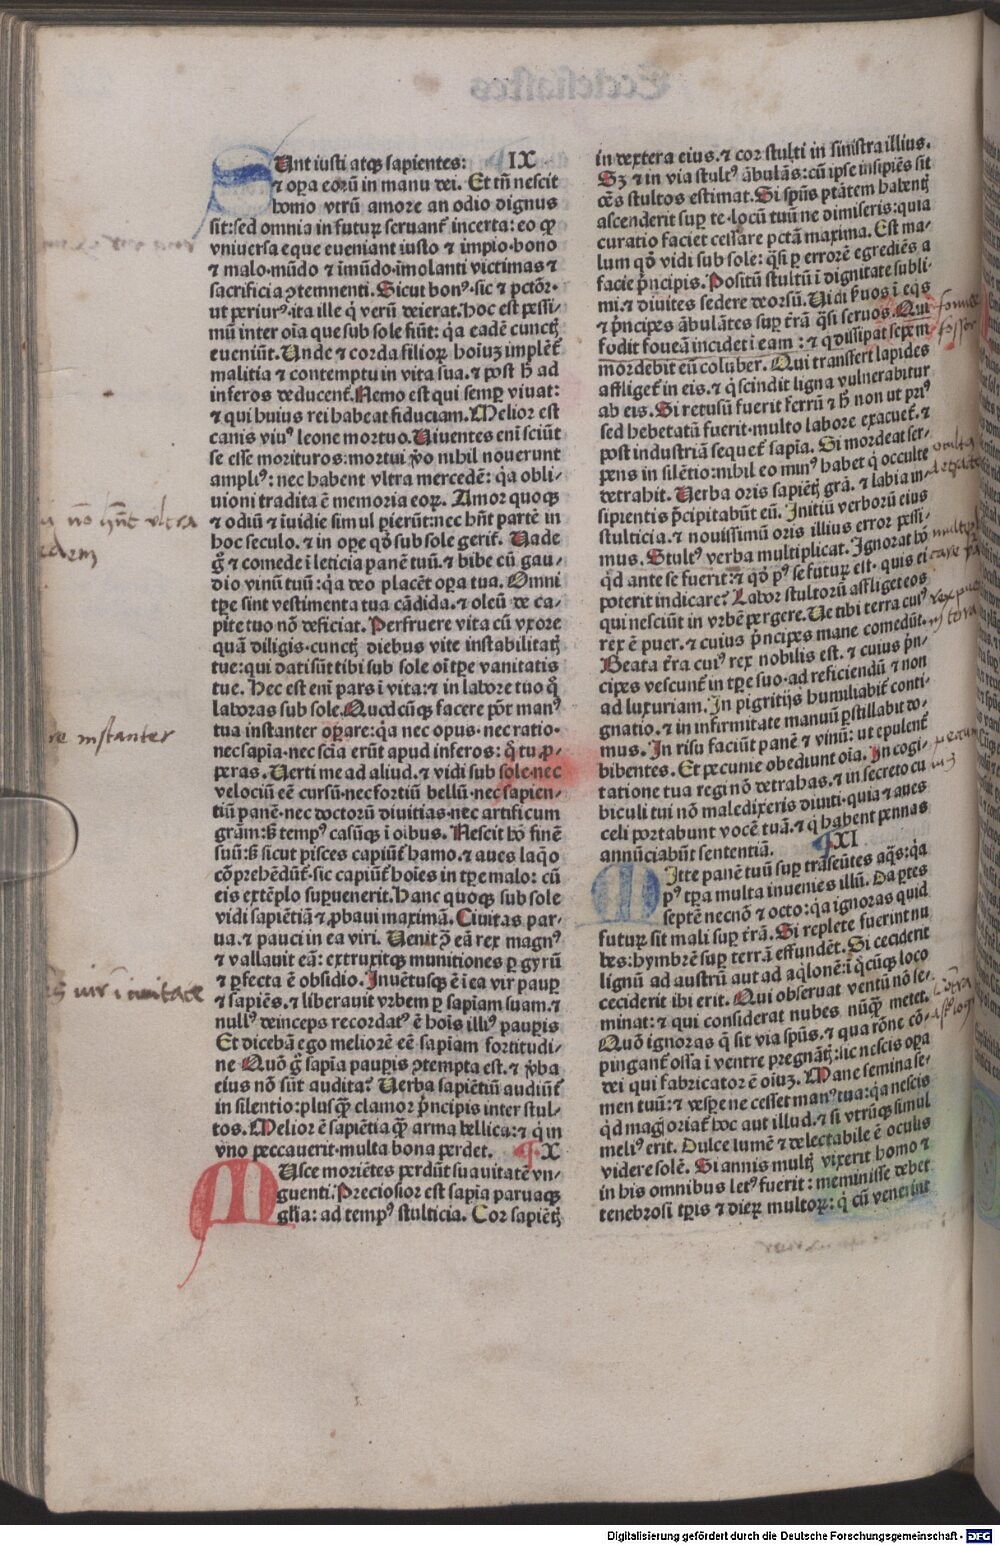 Sunt iusti atqꝫ sapientes: IX
⁊ oꝑa eorū in manu dei. Et tñ nescit
homo vtrū amore an odio dignus
sit: sed omnia in futuꝝ seruant᷑ incerta: eo ꝙ
vniuersa eque eueniant iusto ⁊ impio·bono
⁊ malo·mūdo ⁊ īmūdo·īmolanti victimas ⁊
sacrificia ꝯtemnenti. Sicut bonꝰ·sic ⁊ pctōr·
ut periurꝰ·ita ille q̇ verū deierat. Hoc est pessi-
mū inter oīa que sub sole fiūt: q̇a eadē cunctꝭ
eueniūt. Unde ⁊ corda filioꝝ hoīuꝫ implēt᷑
malitia ⁊ contemptu in vita sua. ⁊ post h̄ ad
inferos deducent᷑. Nemo est qui semꝑ viuat:
⁊ qui huius rei habeat fiduciam. Melior est
canis viuꝰ leone mortuo. Uiuentes eni sciūt
se esse morituros: mortui ꝟo nihil nouerunt
ampliꝰ: nec habent vltra mercedē: q̇a obli-
uioni tradita ē memoria eoꝝ. Amor quoqꝫ
⁊ odiū ⁊ īuidie simul ꝑierūt: nec hn̄t partē in
hoc seculo. ⁊ in oꝑe qď sub sole gerit᷑. Uade
g̊ ⁊ comede ī leticia panē tuū. ⁊ bibe cū gau-
dio vinū tuū: q̇a deo placēt oꝑa tua. Omni
tꝑe sint vestimenta tua cādida. ⁊ oleū de ca-
pite tuo nō deficiat. Perfruere vita cū vxore
quā diligis·cunctꝭ diebus vite instabilitatꝭ
tue: qui dati sūt tibi sub sole oī tꝑe vanitatis
tue. Hec est eni pars ī vita: ⁊ in labore tuo q̊
laboras sub sole. Quodcūqꝫ facere pōt manꝰ
tua instanter oꝑare: q̇a nec opus·nec ratio·
nec sapīa·nec scīa erūt apud inferos: q̊ tu ꝓ-
peras. Uerti me ad aliud. ⁊ vidi sub sole·nec
velociū eē cursū·nec fortiū bellū·nec sapien-
tiū panē·nec doctorū diuitias·nec artificum
grām: sꝫ tempꝰ casūqꝫ ī oībus. Nescit hō finē
suū: sꝫ sicut pisces capiūt᷑ hamo. ⁊ aues laq̊o
cōprehēdūt᷑·sic capiūt᷑ hoīes in tꝑe malo: cū
eis extēplo suꝑuenerit. Hanc quoqꝫ sub sole
vidi sapiētiā ⁊ ꝓbaui maximā. Ciuitas par-
ua. ⁊ pauci in ea viri. Uenit ꝯ̄ eā rex magnꝰ
⁊ vallauit eā: extruxitqꝫ munitiones ꝑ gyrū
⁊ ꝑfecta ē obsidio. Inuētusqꝫ ē ī ea vir pauꝑ
⁊ sapiēs. ⁊ liberauit vrbem ꝑ sapiam suam. ⁊
nullꝰ deinceps recordatꝰ ē hoīs illiꝰ pauꝑis
Et dicebā ego meliorē eē sapiam fortitudi-
ne Quō g̊ sapīa pauꝑis ꝯtempta est. ⁊ ꝟba
eius nō sūt audita? Uerba sapiētiū audiūt᷑
in silentio: plusqꝫ clamor prīncipis inter stul-
tos. Melior ē sapiētia qꝫ arma bellica: ⁊ q̇ in
vno peccauerit·multa bona perdet. X
Musce moriētes perdūt suauitatē vn-
guenti. Preciosior est sapīa paruaqꝫ
gl̄ia: ad tempꝰ stulticia. Cor sapiētꝭ
in dextera eius. ⁊ cor stulti in sinistra illius.
Sꝫ ⁊ in via stultꝰ ābulās: cū ipse insipiēs sit
oēs stultos estimat. Si spūs ptātem habentꝭ
ascenderit suꝑ te·locū tuū ne dimiseris: quia
curatio faciet cessare pctā maxima. Est ma-
lum qď vidi sub sole: q̄si ꝑ errorē egrediēs a
facie prīncipis. Positū stultū ī dignitate subli-
mi. ⁊ diuites sedere deorsū. Uidi ẜuos ī eqꝭ
⁊ prīncipes ābulātes suꝑ t̄rā q̄si seruos. Qui
fodit foueā incidet ī eam: ⁊ q̇ dissipat sepem
mordebit eū coluber. Qui transfert lapides
affliget᷑ in eis. ⁊ q̇ scindit ligna vulnerabitur
ab eis. Si retusū fuerit ferrū ⁊ h̄ non ut priꝰ
sed hebetatū fuerit·multo labore exacuet᷑. ⁊
post industriā sequet᷑ sapīa. Si mordeat ser-
pens in silētio: nihil eo minꝰ habet q̇ occulte
detrahit. Uerba oris sapiētꝭ gr̄a. ⁊ labia in-
sipientis p̄cipitabūt eū. Initiū verborū eius
stulticia. ⁊ nouissimū oris illius error pessi-
mus. Stultꝰ verba multiplicat. Ignorat hō
qď ante se fuerit: ⁊ qď pꝰ se futuꝝ est· quis ei
poterit indicare? Labor stultorū affliget eos
qui nesciūt in vrbē pergere. Ue tibi terra cuiꝰ
rex ē puer. ⁊ cuius prīncipes mane comedūt.
Beata t̄ra cuiꝰ rex nobilis est. ⁊ cuius prīn-
cipes vescunt᷑ in tꝑe suo·ad reficiendū ⁊ non
ad luxuriam. In pigritijs humiliabit᷑ conti-
gnatio. ⁊ in infirmitate manuū ꝑstillabit do-
mus. In risu faciūt panē ⁊ vinū: ut epulent᷑
bibentes. Et pecunie obediunt oīa. In cogi-
tatione tua regi nō detrahas. ⁊ in secreto cu
biculi tui nō maledixeris diuiti·quia ⁊ aues
celi portabunt vocē tuā. ⁊ q̇ habent pennas
annūciabūt sententiā. XI
Mitte panē tuū suꝑ trāseūtes aq̄s: q̇a
pꝰ tꝑa multa inuenies illū. Da ꝑtes
septē necnō ⁊ octo: q̇a ignoras quid
futuꝝ sit mali suꝑ t̄rā. Si replete fuerint nu
bes: hymbrē suꝑ terrā effundēt. Si ceciderit
lignū ad austrū aut ad aq̇lonē: ī q̊cūqꝫ loco
ceciderit ibi erit. Qui obseruat ventū nō se-
minat: ⁊ qui considerat nubes nūqꝫ metet.
Quō ignoras q̄ sit via spūs. ⁊ qua rōne cō-
pingant᷑ ossa ī ventre pregnātꝭ: sic nescis oꝑa
dei qui fabricator ē oīuꝫ. Mane semina se-
men tuū: ⁊ vesꝑe ne cesset manꝰ tua: q̇a nescis
q̇d magꝭ oriat᷑ hoc aut illud. ⁊ si vtrūqꝫ simul
meliꝰ erit. Dulce lumē ⁊ delectabile ē oculis
videre solē. Si annis multꝭ vixerit homo ⁊
in his omnibus letꝰ fuerit: meminisse debet
tenebrosi tꝑis ⁊ dieꝝ multoꝝ: q̇ cū venerint
nō hn̄t vltra
re instanter
vir ī ciuitate
Digitalisierung gefördert durch die Deutsche Forschungsgemeinschaft - DFG